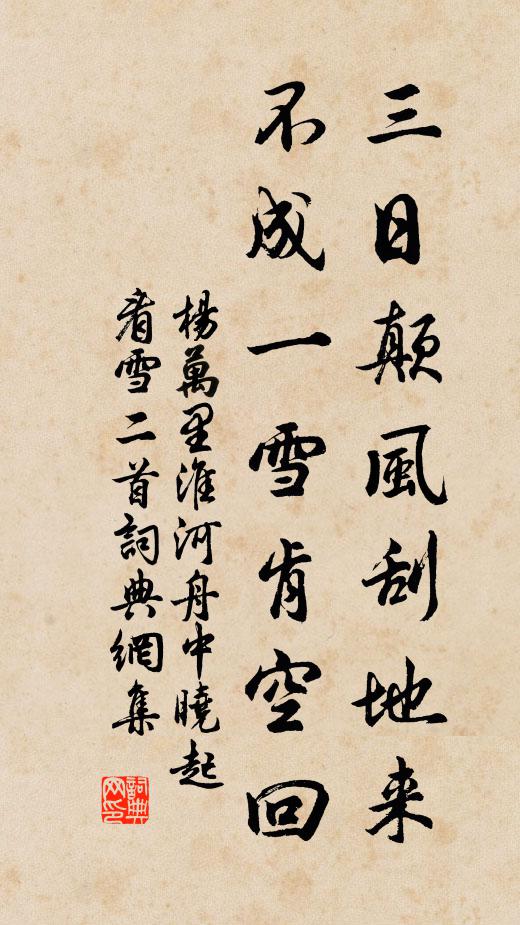 三日顛風刮地来
不成一雪肯空回
楊萬里淮河舟中曉起
看雪二首詞典網集
詞典
网印